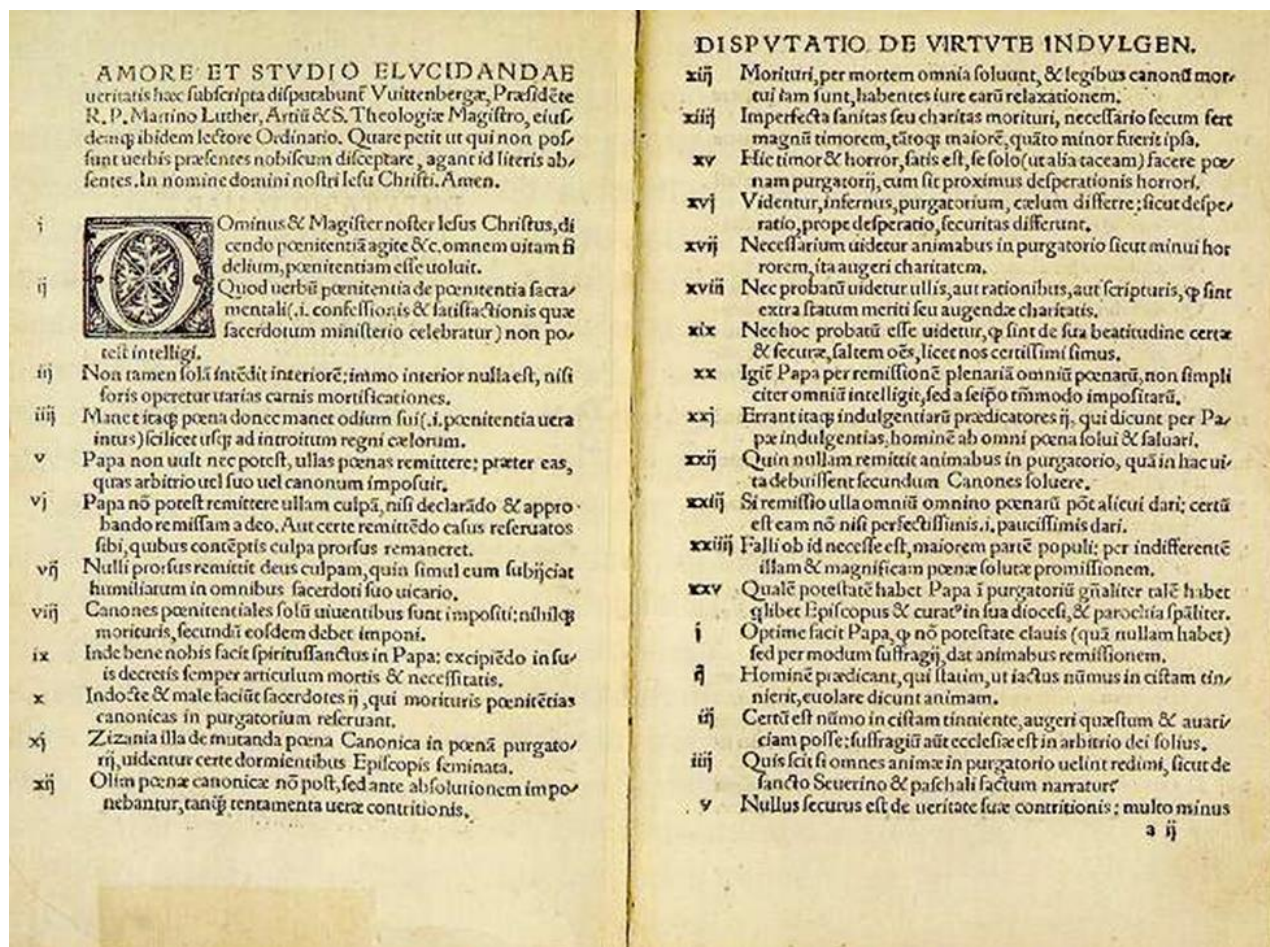 AMORE ET STVDIO ELVCIDANDAE
ueritatis hæc subscripta disputabunẽ Vuittenbergæ, Præsidẽte
R. P. Martino Luther, Artiũ & S. Theologiæ Magistro, eius-
demq; ibidem lectore Ordinario. Quare petit ut qui non pos-
sunt uerbis præsentes nobiscum disceptare, agant id literis ab-
sentes. In nomine domini nostri Iesu Christi. Amen.
i DOminus & Magister noster Iesus Christus, di
cendo pœnitentiã agite &c. omnem uitam fi
delium, pœnitentiam esse uoluit.
ij Quod uerbũ pœnitentia de pœnitentia sacra-
mentali (.i. confessionis & satisfactionis quæ
sacerdotum ministerio celebratur) non po-
test intelligi.
iij Non tamen solã intẽdit interiorẽ: immo interior nulla est, nisi
foris operetur uarias carnis mortificationes.
iiij Manet itaq; pœna donec manet odium sui (.i. pœnitentia uera
intus) scilicet usq; ad introitum regni cælorum.
v Papa non uult nec potest, ullas pœnas remittere: præter eas,
quas arbitrio uel suo uel canonum imposuit.
vj Papa nõ potest remittere ullam culpã, nisi declarãdo & appro-
bando remissam a deo. Aut certe remittẽdo casus reseruatos
sibi, quibus contẽptis culpa prorsus remaneret.
vij Nulli prorsus remittit deus culpam, quin simul eum subijciat
humiliatum in omnibus sacerdoti suo uicario.
viij Canones pœnitentiales solũ uiuentibus sunt impositi: nihilq;
morituris, secundũ eosdem debet imponi.
ix Inde bene nobis facit spiritussanctus in Papa: excipiẽdo in su-
is decretis semper articulum mortis & necessitatis.
x Indocte & male faciũt sacerdotes ij, qui morituris pœnitẽtias
canonicas in purgatorium reseruant.
xj Zizania illa de mutanda pœna Canonica in pœnã purgato-
rij, uidentur certe dormientibus Episcopis seminata.
xij Olim pœnæ canonicæ nõ post, sed ante absolutionem impo-
nebantur, tanq̃ tentamenta ueræ contritionis.
DISPVTATIO DE VIRTVTE INDVLGEN.
xiij Morituri, per mortem omnia soluunt, & legibus canonũ mor-
tui iam sunt, habentes iure earũ relaxationem.
xiiij Imperfecta sanitas seu charitas morituri, necessario secum fert
magnũ timorem, tãtoq; maiorẽ, quãto minor fuerit ipsa.
xv Hic timor & horror, satis est, se solo (ut alia taceam) facere pœ-
nam purgatorij, cum sit proximus desperationis horrori.
xvj Videntur, infernus, purgatorium, cælum differre: sicut despe-
ratio, prope desperatio, securitas differunt.
xvij Necessarium uidetur animabus in purgatorio sicut minui hor
rorem, ita augeri charitatem.
xviij Nec probatũ uidetur ullis, aut rationibus, aut scripturis, ꝙ sint
extra statum meriti seu augendæ charitatis.
xix Nec hoc probatũ esse uidetur, ꝙ sint de sua beatitudine certæ
& securæ, saltem oẽs, licet nos certissimi simus.
xx Igit̃ Papa per remissionẽ plenariã omniũ pœnarũ, non simpli
citer omniũ intelligit, sed a seip̃o tm̃modo impositarũ.
xxj Errant itaq; indulgentiarũ prædicatores ij, qui dicunt per Pa-
pæ indulgentias, hominẽ ab omni pœna solui & saluari.
xxij Quin nullam remittit animabus in purgatorio, quã in hac ui-
ta debuissent secundum Canones soluere.
xxiij Si remissio ulla omniũ omnino pœnarũ põt alicui dari: certũ
est eam nõ nisi perfectissimis .i. paucissimis dari.
xxiiij Falli ob id necesse est, maiorem partẽ populi: per indifferentẽ
illam & magnificam pœnæ solutæ promissionem.
xxv Qualẽ potestatẽ habet Papa ĩ purgatoriũ gñaliter talẽ habet
q̃libet Episcopus & curatꝰ in sua diocesi, & parochia sp̃aliter.
i Optime facit Papa, ꝙ nõ potestate clauis (quã nullam habet)
sed per modum suffragij, dat animabus remissionem.
ij Hominẽ prædicant, qui statim, ut iactus nũmus in cistam tin-
nierit, euolare dicunt animam.
iij Certũ est nũmo in cistam tinniente, augeri quæstum & auari-
ciam posse: suffragiũ aũt ecclesiæ est in arbitrio dei solius.
iiij Quis scit si omnes animæ in purgatorio uelint redimi, sicut de
sancto Seuerino & paschali factum narratur?
v Nullus securus est de ueritate suæ contritionis: multo minus
a ij